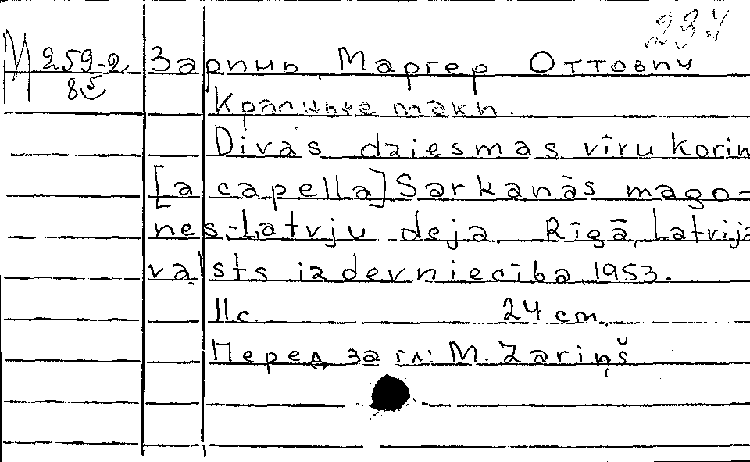 294
М 259-2
85
Зариль, Маргер Оттович
Красные маки.
Divas dziesmas vīru korim
[a capella] Sarkanās mago-
nes.-Latvju deja. Rīgā, Latvijas
valsts izdevniecība 1953.
11 с. 24 cm.
Перед загл: M. Zariņš